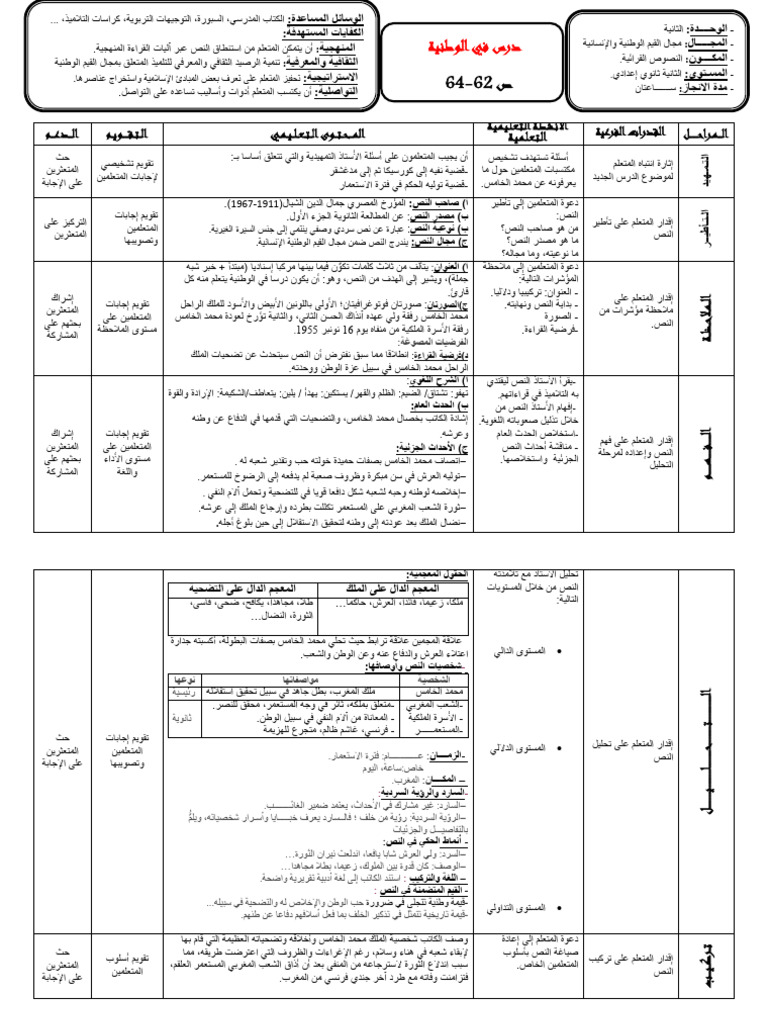 - الوحـــدة: الثانية
- المجـــال: مجال القيم الوطنية والإنسانية
- المكـــون: النصوص القرائية.
- المستوى: الثانية ثانوي إعدادي.
- مدة الانجاز: ســـاعتان
درس في الوطنية
ص 62-64
الوسائل المساعدة: الكتاب المدرسي، السبورة، التوجيهات التربوية، كراسات التلاميذ، ...
الكفايات المستهدفة:
المنهجية: أن يتمكن المتعلم من استنطاق النص عبر آليات القراءة المنهجية.
الثقافية والمعرفية: تنمية الرصيد الثقافي والمعرفي للتلميذ المتعلق بمجال القيم الوطنية
الاستراتيجية: تحفيز المتعلم على تعرف بعض المبادئ الإسلامية واستخراج عناصرها.
التواصلية: أن يكتسب المتعلم أدوات وأساليب تساعده على التواصل.
المراحل
القدرات الفرعية
الأنشطة التعليمية
التعلمية
المحتوى التعليمي
التقويم
الدعم
التمهيد
إثارة انتباه المتعلم
لموضوع الدرس الجديد
أسئلة تستهدف تشخيص
مكتسبات المتعلمين حول ما
يعرفونه عن محمد الخامس.
أن يجيب المتعلمون على أسئلة الأستاذ التمهيدية والتي تتعلق أساسا بـ:
- قضية نفيه إلى كورسيكا ثم إلى مدغشقر
- قضية توليه الحكم في فترة الاستعمار
تقويم تشخيصي
لإجابات المتعلمين
حث
المتعثرين
على الإجابة
التأطير
إقدار المتعلم على تأطير
النص
دعوة المتعلمين إلى تأطير
النص:
من هو صاحب النص؟
ما هو مصدر النص؟
ما نوعيته، وما مجاله؟
ا) صاحب النص: المؤرخ المصري جمال الدين الشيال(1911-1967).
ب) مصدر النص: عن المطالعة الثانوية الجزء الأول.
ب) نوعية النص: عبارة عن نص سردي وصفي ينتمي إلى جنس السيرة الغيرية.
ج) مجال النص: يندرج النص ضمن مجال القيم الوطنية الإنسانية.
تقويم إجابات
المتعلمين
وتصويبها
التركيز على
المتعثرين
الملاحظة
إقدار المتعلم على
ملاحظة مؤشرات من
النص.
دعوة المتعلمين إلى ملاحظة
المؤشرات التالية:
- العنوان: تركيبيا ودلاليا.
- بداية النص ونهايته.
- الصورة
-فرضية القراءة.
ا) العنوان: يتألف من ثلاث كلمات تكوّن فيما بينها مركبا إسناديا (مبتدأ + خبر شبه
جملة)، ويشير إلى الهدف من النص، وهو: أن يكون درسا في الوطنية يتعلم منه كل
قارئ.
ج)الصورتان: صورتان فوتوغرافيتان؛ الأولى باللونين الأبيض والأسود للملك الراحل
محمد الخامس رفقة ولي عهده آنذاك الحسن الثاني، والثانية تؤرخ لعودة محمد الخامس
رفقة الأسرة الملكية من منفاه يوم 16 نونبر 1955.
الفرضيات المصوغة:
د)فرضية القراءة: انطلاقا مما سبق نفترض أن النص سيتحدث عن تضحيات الملك
الراحل محمد الخامس في سبيل عزة الوطن ووحدته.
تقويم إجابات
المتعلمين على
مستوى الملاحظة
إشراك
المتعثرين
بحثهم على
المشاركة
الفهم
إقدار المتعلم على فهم
النص وإعداده لمرحلة
التحليل
-يقرأ الأستاذ النص ليقتدي
به التلاميذ في قراءاتهم.
-إفهام الأستاذ النص من
خلال تذليل صعوباته اللغوية.
-استخلاص الحدث العام
- مناقشة أحداث النص
الجزئية واستخلاصها.
ا) الشرح اللغوي:
تهفو: تشتاق/ الضيم: الظلم والقهر/ يستكين: يهدأ / يلين: يتعاطف/الشكيمة: الإرادة والقوة
ب) الحدث العام:
إشادة الكاتب بخصال محمد الخامس، والتضحيات التي قدمها في الدفاع عن وطنه
وعرشه.
ج) الأحداث الجزئية:
–اتصاف محمد الخامس بصفات حميدة خولته حب وتقدير شعبه له.
–توليه العرش في سن مبكرة وظروف صعبة لم يدفعه إلى الرضوخ للمستعمر.
–إخلاصه لوطنه وحبه لشعبه شكل دافعا قويا في للتضحية وتحمل آلام النفي.
–ثورة الشعب المغربي على المستعمر تكللت برده وإرجاع الملك إلى عرشه.
–نضال الملك بعد عودته إلى وطنه لتحقيق الاستقلال إلى حين بلوغ أجله.
تقويم إجابات
المتعلمين على
مستوى الأداء
واللغة
إشراك
المتعثرين
بحثهم على
المشاركة
التحليل
إقدار المتعلم على تحليل
النص
تحليل الأستاذ مع تلامذته
النص من خلال المستويات
التالية:
• المستوى الدلالي
• المستوى الدلالي
• المستوى التداولي
الحقول المعجمية:
المعجم الدال على الملك
المعجم الدال على التضحية
ملكا، زعيما، قائدا، العرش، حاكما...
بطلا، مجاهدا، يكافح، ضحى، قاسى،
الثورة، النضال...
علاقة المجمين علاقة ترابط حيث تحلي محمد الخامس بصفات البطولة، أكسبته جدارة
اعتلاء العرش والدفاع عنه وعن الوطن والشعب.
-شخصيات النص وأوصافها:
الشخصية
مواصفاتها
نوعها
محمد الخامس
ملك المغرب، بطل جاهد في سبيل تحقيق استقلاله
رئيسية
-الشعب المغربي
-متعلق بملكه، ثائر في وجه المستعمر، محقق للنصر.
- الأسرة الملكية
- المعاناة من آلام النفي في سبيل الوطن.
ثانوية
-المستعمـــر
- فرنسي، غاشم ظالم، متجرع للهزيمة
-الزمـــان: عـــــام: فترة الاستعمار.
خاص:ساعة، اليوم
– المكـــان: المغرب.
-السارد والرؤية السردية:
–السارد: غير مشارك في الأحداث، يعتمد ضمير الغائــــب.
–الرؤية السردية: رؤية من خلف ؛ فالـسارد يعرف خبـــايا وأسرار شخصياته، ويلمُّ
بالتفاصيــل والجزئيات
- أنماط الحكي في النص:
–السرد: ولي العرش شابا يافعا، اندلعت نيران الثورة...
–الوصف: كان قدوة بين الملوك، زعيما، بطلا مجاهدا...
- اللغة والتركيب : استند الكاتب إلى لغة أدبية تقريرية واضحة.
- القيم المتضمنة في النص :
-قيمة وطنية تتجلى في ضرورة حب الوطن والإخلاص له والتضحية في سبيله...
-قيمة تاريخية تتمثل في تذكير الخلف بما فعل أسلافهم دفاعا عن طنهم.
تقويم إجابات
المتعلمين
وتصويبها
حث
المتعثرين
على الإجابة
تركيب
إقدار المتعلم على تركيب
النص
دعوة المتعلم إلى إعادة
صياغة النص بأسلوب
المتعلمين الخاص.
وصف الكاتب شخصية الملك محمد الخامس وأخلاقه وتضحياته العظيمة التي قام بها
لإبقاء شعبه في هناء وسلام، رغم الإغراءات والظروف التي اعترضت طريقه، مما
سبب اندلاع الثورة لاسترجاعه من المنفى بعد أن أذاق الشعب المغربي المستعمر العلقم،
فتزامنت وفاته مع طرد آخر جندي فرنسي من المغرب.
تقويم أسلوب
المتعلمين
حث
المتعثرين
على الإجابة